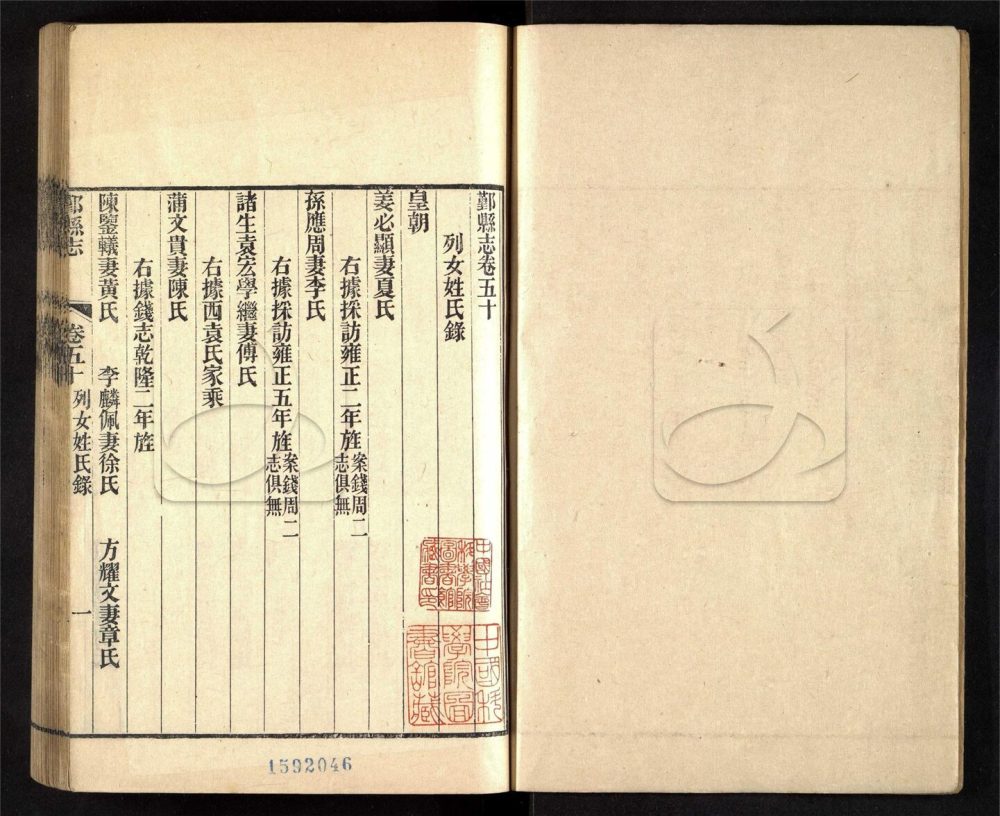 鄞縣志卷五十
列女姓氏錄
皇朝
姜必顯妻夏氏
右據採訪雍正二年旌案錢周二志俱無
孫應周妻李氏
右據採訪雍正五年旌案錢周二志俱無
諸生袁宏學繼妻傅氏
右據西袁氏家乘
蒲文貴妻陳氏
右據錢志乾隆二年旌
陳鑒轙妻黃氏 李麟佩妻徐氏 方耀文妻章氏
鄞縣志 卷五十 列女姓氏錄 一
中國社會科學院圖書館藏書印
中國科學院圖書館藏
1592046